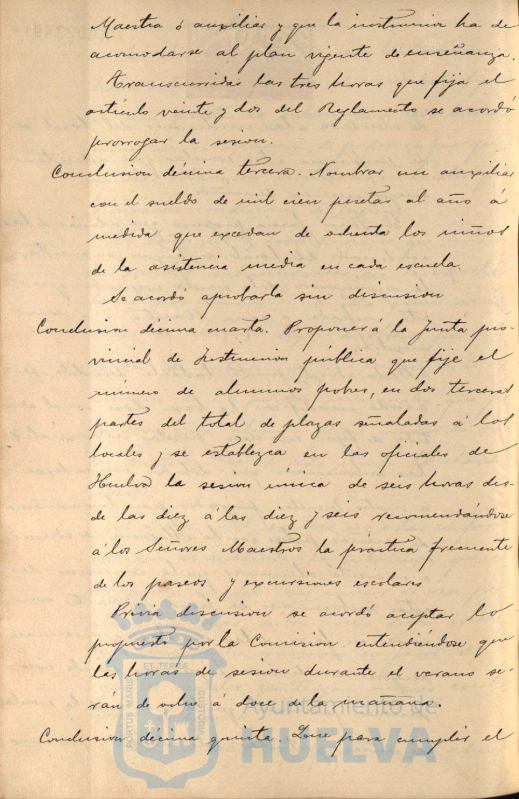 Maestra ó auxiliar y que la instruccion ha de
acomodarse al plan vigente de enseñanza.
Transcurridas las tres horas que fija el
artículo veinte y dos del Reglamento se acordó
prorrogar la sesion.
Conclusion décima tercera. Nombrar un auxiliar
con el sueldo de mil cien pesetas al año á
medida que excedan de ochenta los niños
de la asistencia media en cada escuela.
Se acordó aprobarla sin discusion
Conclusion décima cuarta. Proponer á la Junta pro-
vincial de Instruccion pública que fije el
número de alumnos pobres, en dos terceras
partes del total de plazas señaladas á los
locales y se establezca en las oficiales de
Huelva la sesion única de seis horas des-
de las diez á las diez y seis recomendándose
á los Señores Maestros la práctica frecuente
de los paseos y excursiones escolares
Prévia discusion se acordó aceptar lo
propuesto por la Comision entendiéndose que
las horas de sesion durante el verano se-
rán de ocho á doce de la mañana.
Conclusion décima quinta. Que para cumplir el
PORTUS MARIS ET TERRE CUSTODIA
Ayuntamiento de
HUELVA